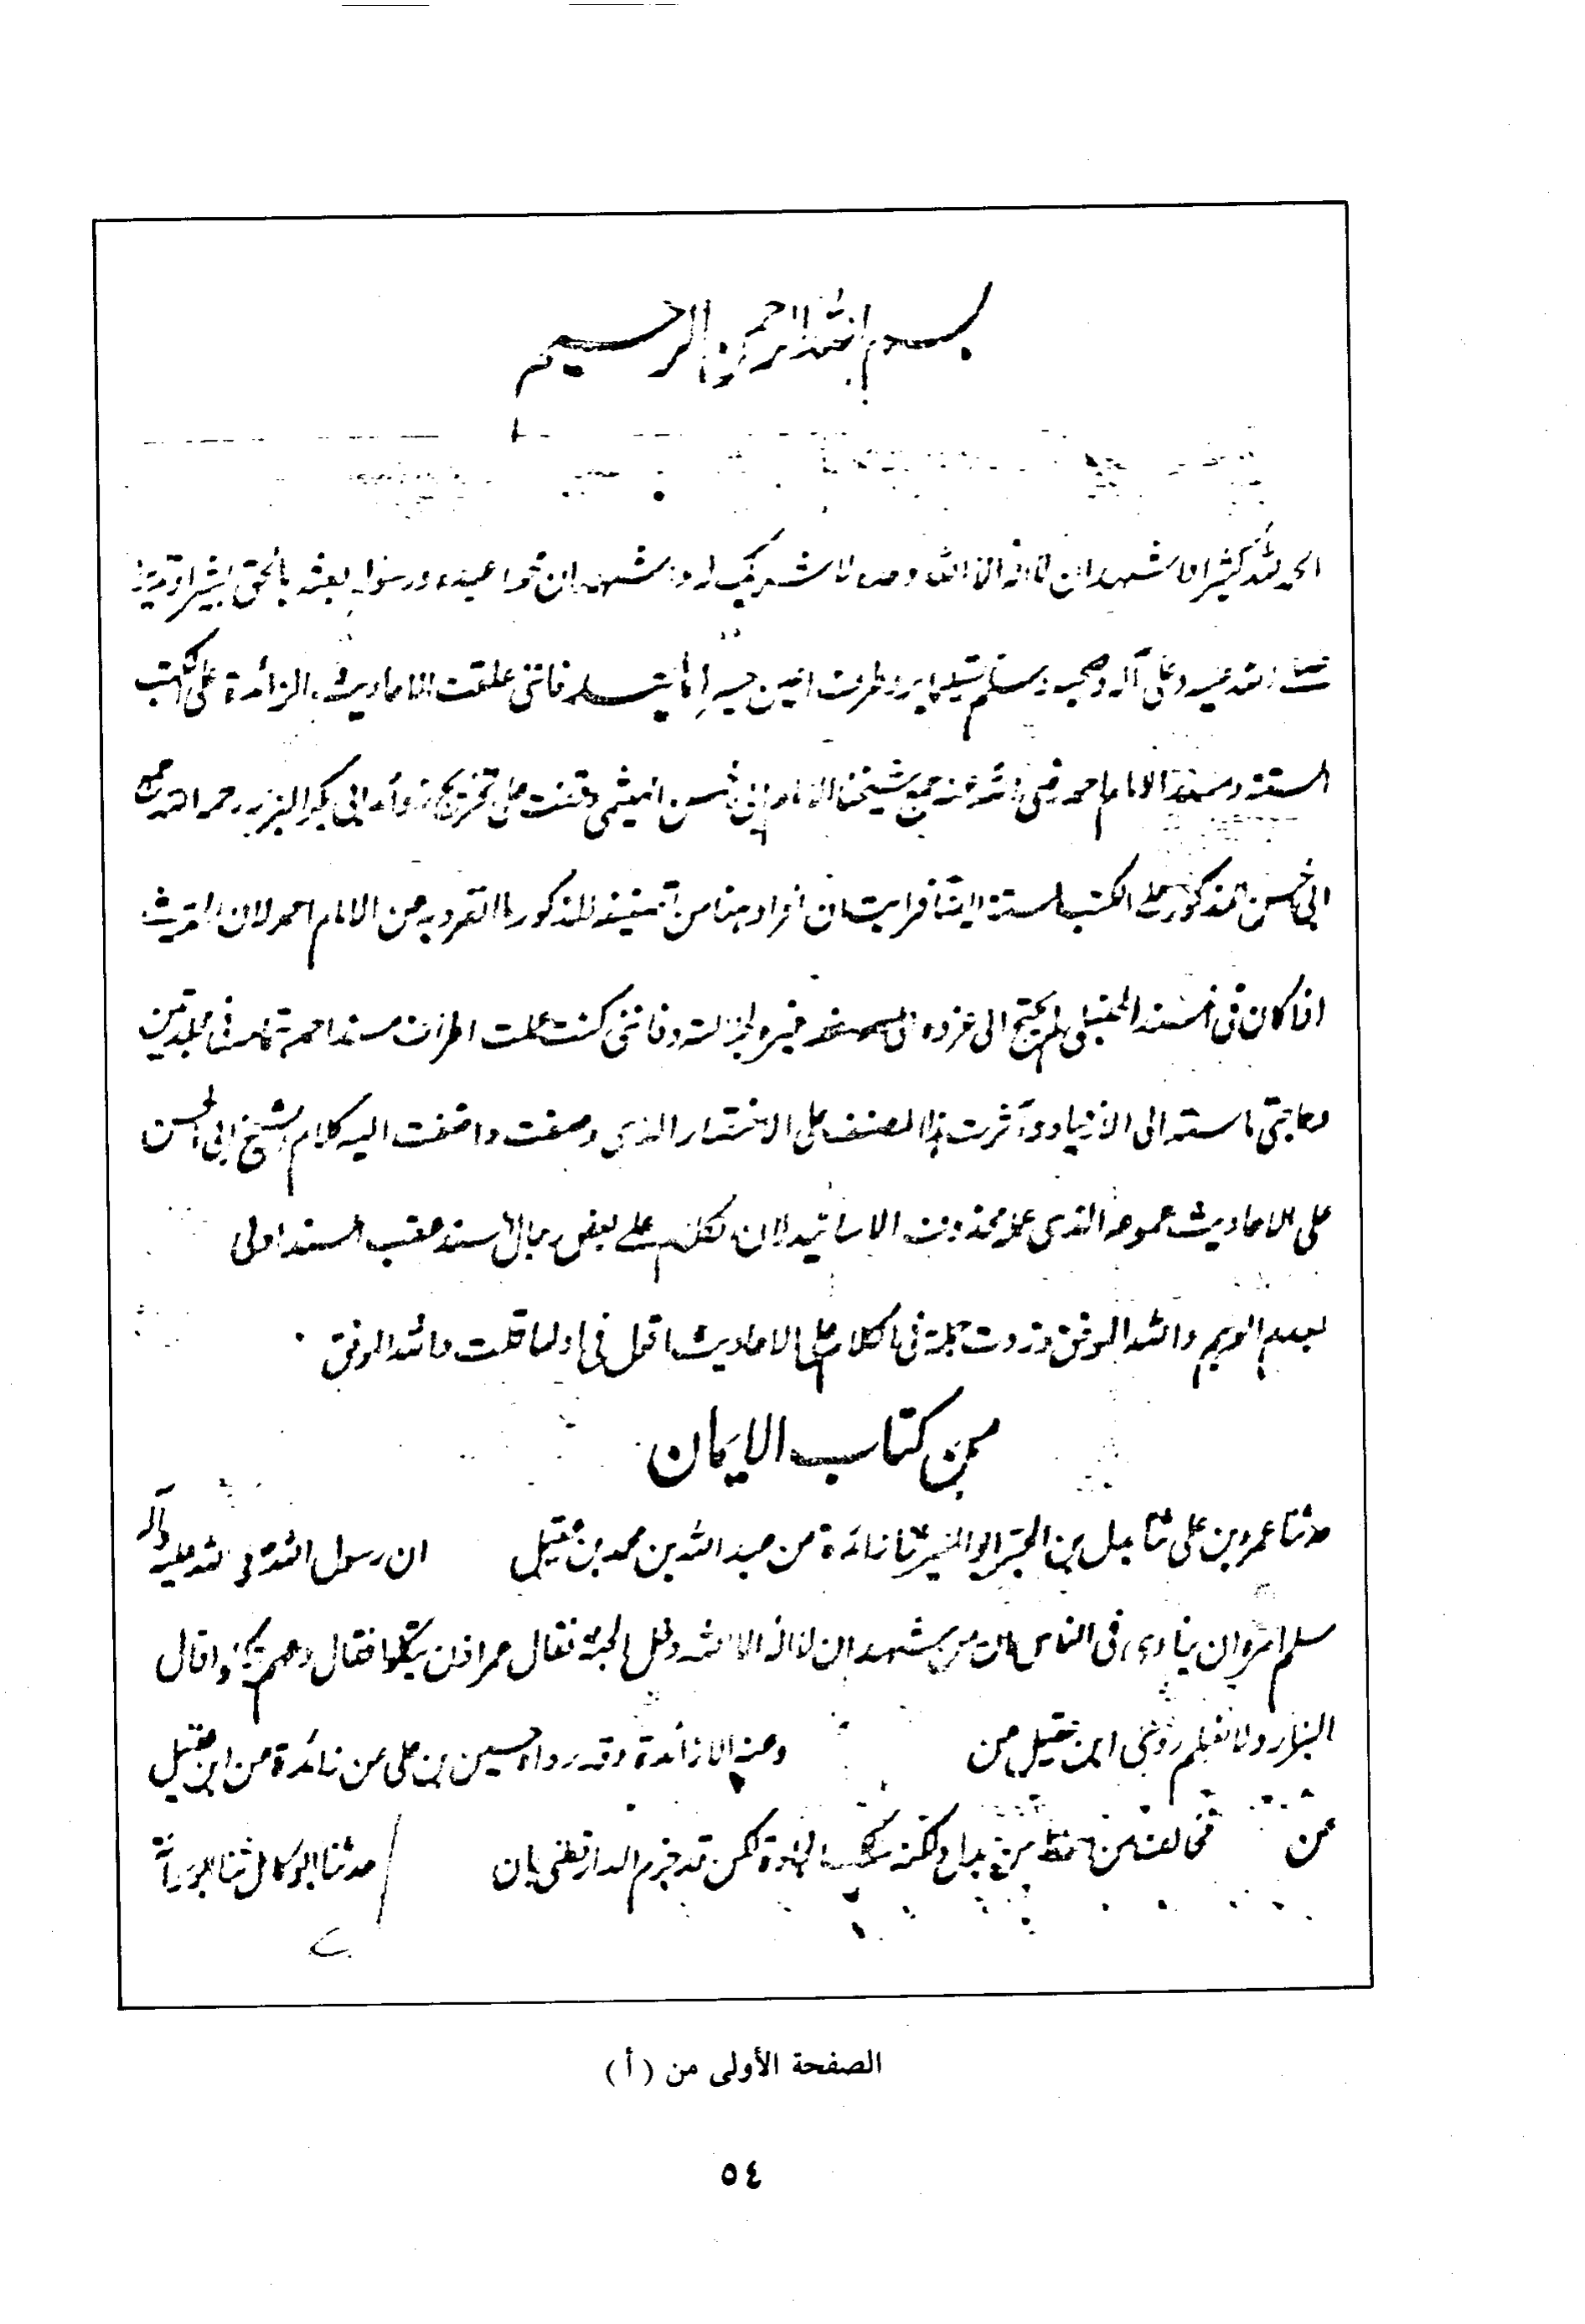 بسم الله الرحمن الرحيم
الحمد لله كثيرا واشهد ان لا اله الا الله وحده لا شريك له واشهد ان محمدا عبده ورسوله بعثه بالحق بشيرا ونذيرا
الله عليه وعلى آله وصحبه وسلم تسليما اما بعد فانني علقت الاحاديث الزائدة على الكتب
الستة ومسند الامام احمد رضي الله عنه جمع شيخنا الامام ابي الحسن الهيثمي وقفت على تخريج زوائد ابي بكر البزار رحمه الله جمع
ابي الحسن المذكور على الكتب الستة ايضا فرايت ان افرد هنا من تصنيفه المذكور ما انفرد به عن الامام احمد لان الحديث
اذا كان في المسند الحنبلي لم يحتج الى عزوه الى مصنف غيره لجلالته وفانني كنت عملت اطراف مسند احمد تامة في مجلدين
وحاجتي ماسة الى الازدياد وآثرت هذا المصنف على الاختصار الذي وصفت واضفت اليه كلام الشيخ ابي الحسن
على الاحاديث مجموعه الذي عمله محذوف الاسانيد لان الكلام على بعض رجال السند عقب السند اولى
لعدم الوهم والله الموفق وزدت جملة في الكلام على الاحاديث اقول في اولها قلت والله الموفق
من كتاب الايمان
حدثنا عمرو بن علي ثنا بدل بن المحبر ابو المنير ثنا زائدة عن عبد الله بن محمد بن عقيل ان رسول الله صلى الله عليه وآله
سلم امره ان ينادي في الناس ان من شهد ان لا اله الا الله دخل الجنة فقال عمر اذن يتكلوا فقال دعهم يتكلوا قال
البزار ولا نعلم روى ابن عقيل عن وعنه الا زائدة وقد رواه حسين بن علي عن زائدة عن ابن عقيل
عن لكنه سلك الجادة لكن قد جزم الدارقطني بان حدثنا ابو كامل ثنا ابو
الصفحة الأولى من (أ)
٥٤